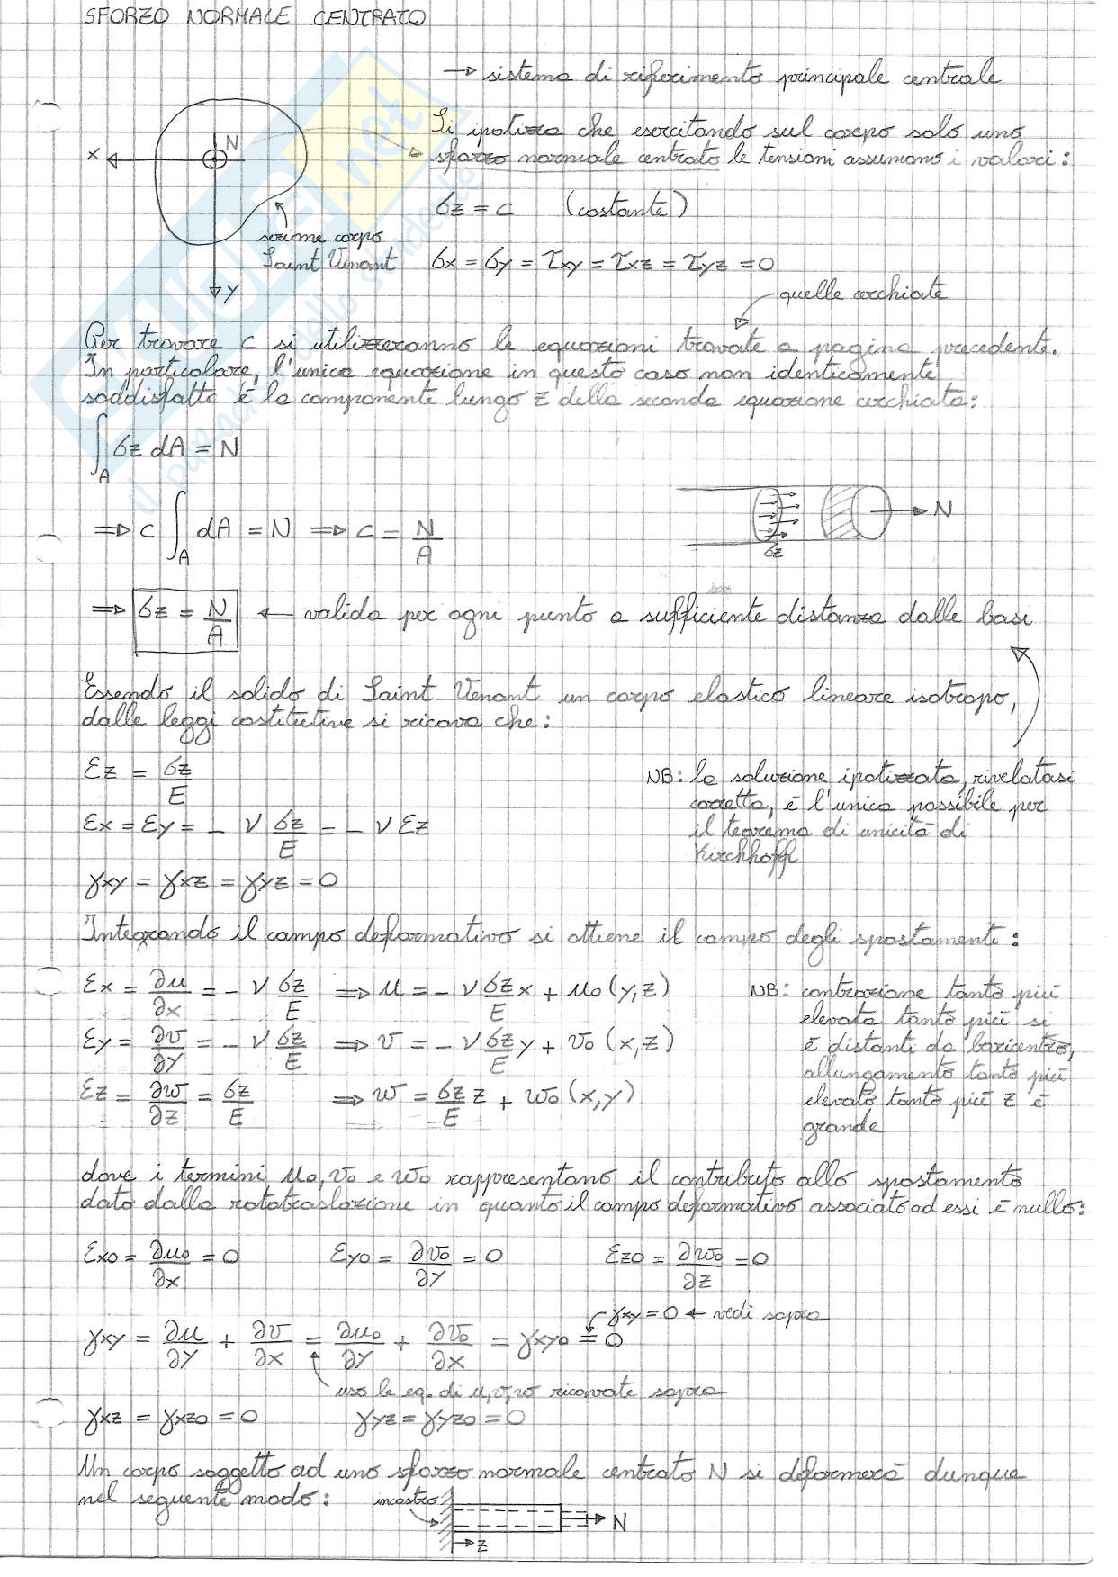 SFORZO NORMALE CENTRATO
→ sistema di riferimento principale centrale
Si ipotizza che esercitando sul corpo solo uno
sforzo normale centrato le tensioni assumano i valori:
N
x
σz = c (costante)
sezione corpo
Saint Venant
y
σx = σy = τxy = τxz = τyz = 0
quelle cerchiate
Per trovare c si utilizzeranno le equazioni trovate a pagina precedente.
In particolare, l'unica equazione in questo caso non identicamente
soddisfatta è la componente lungo z della seconda equazione cerchiata:
∫A σz dA = N
⇒ c ∫A dA = N ⇒ c = N/A
σz
N
⇒ σz = N/A ← valida per ogni punto a sufficiente distanza dalle basi
Essendo il solido di Saint Venant un corpo elastico lineare isotropo,
dalle leggi costitutive si ricava che:
εz = σz/E
εx = εy = - ν σz/E = - ν εz
γxy = γxz = γyz = 0
NB: la soluzione ipotizzata, rivelatasi
corretta, è l'unica possibile per
il teorema di unicità di
Kirchhoff
Integrando il campo deformativo si ottiene il campo degli spostamenti:
εx = ∂u/∂x = - ν σz/E ⇒ u = - ν σz/E x + u₀ (y,z)
εy = ∂v/∂y = - ν σz/E ⇒ v = - ν σz/E y + v₀ (x,z)
εz = ∂w/∂z = σz/E ⇒ w = σz/E z + w₀ (x,y)
NB: contrazione tanto più
elevata tanto più si
è distanti da baricentro,
allungamento tanto più
elevato tanto più z è
grande
dove i termini u₀, v₀ e w₀ rappresentano il contributo allo spostamento
dato dalla rototraslazione in quanto il campo deformativo associato ad essi è nullo:
εx0 = ∂u₀/∂x = 0 εy0 = ∂v₀/∂y = 0 εz0 = ∂w₀/∂z = 0
γxy = 0 ← vedi sopra
γxy = ∂u/∂y + ∂v/∂x = ∂u₀/∂y + ∂v₀/∂x = γxy0 = 0
uso le eq. di u, v, w ricavate sopra
γxz = γxz0 = 0 γyz = γyz0 = 0
Un corpo soggetto ad uno sforzo normale centrato N si deformerà dunque
nel seguente modo:
incastro
N
z